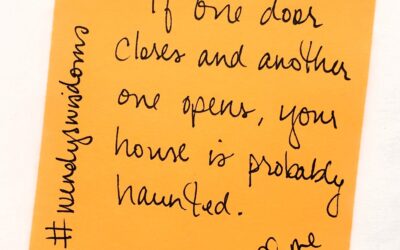 If one door
closes and another
one opens, your
house is probably
haunted.
#wendyswisdoms